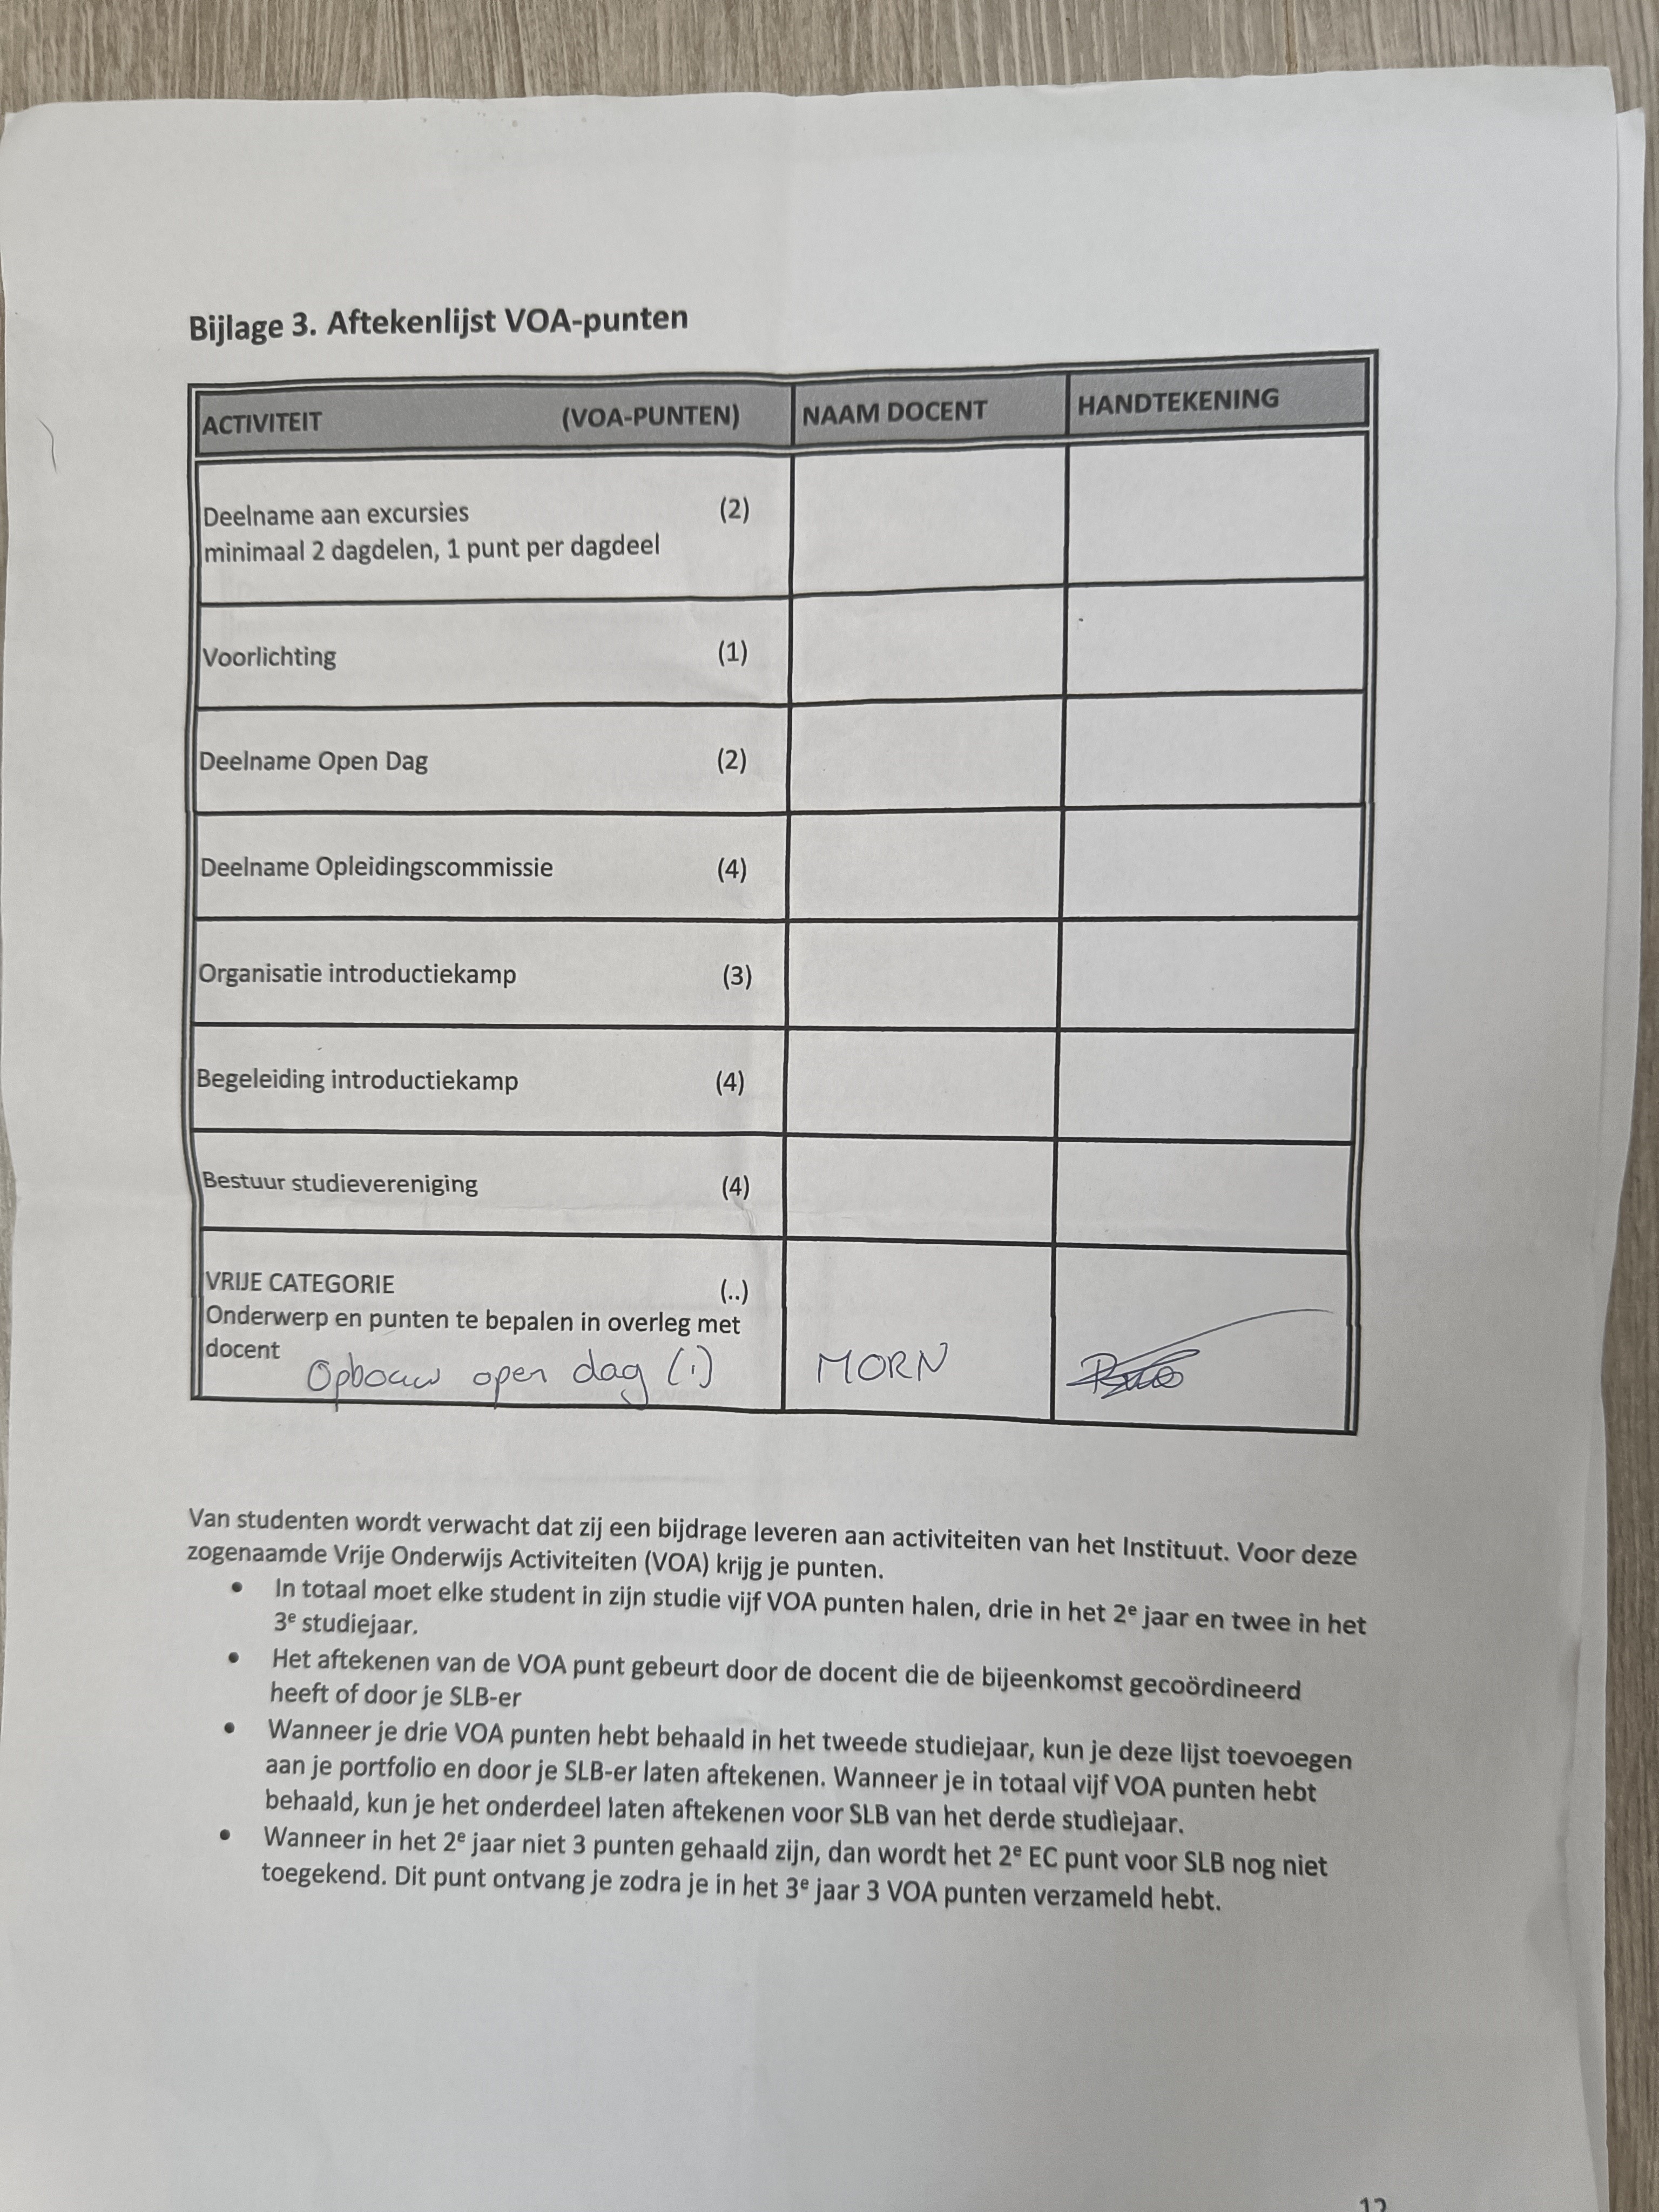 Bijlage 3. Aftekenlijst VOA-punten
ACTIVITEIT (VOA-PUNTEN) NAAM DOCENT HANDTEKENING
Deelname aan excursies (2)
minimaal 2 dagdelen, 1 punt per dagdeel
Voorlichting (1)
Deelname Open Dag (2)
Deelname Opleidingscommissie (4)
Organisatie introductiekamp (3)
Begeleiding introductiekamp (4)
Bestuur studievereniging (4)
VRIJE CATEGORIE (..)
Onderwerp en punten te bepalen in overleg met
docent
Opbouw open dag (1) MORN
Van studenten wordt verwacht dat zij een bijdrage leveren aan activiteiten van het Instituut. Voor deze
zogenaamde Vrije Onderwijs Activiteiten (VOA) krijg je punten.
• In totaal moet elke student in zijn studie vijf VOA punten halen, drie in het 2e jaar en twee in het
3e studiejaar.
• Het aftekenen van de VOA punt gebeurt door de docent die de bijeenkomst gecoördineerd
heeft of door je SLB-er
• Wanneer je drie VOA punten hebt behaald in het tweede studiejaar, kun je deze lijst toevoegen
aan je portfolio en door je SLB-er laten aftekenen. Wanneer je in totaal vijf VOA punten hebt
behaald, kun je het onderdeel laten aftekenen voor SLB van het derde studiejaar.
• Wanneer in het 2e jaar niet 3 punten gehaald zijn, dan wordt het 2e EC punt voor SLB nog niet
toegekend. Dit punt ontvang je zodra je in het 3e jaar 3 VOA punten verzameld hebt.